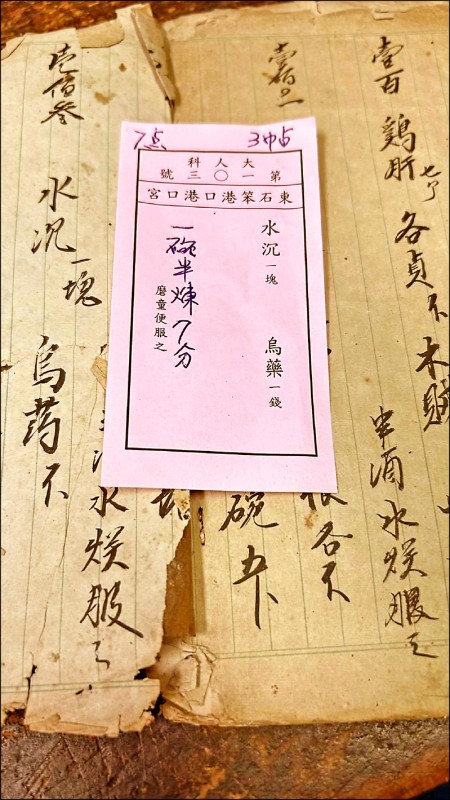 壹百 鷄肝 各 不 木賊
半酒水 服之
壹佰二
各不
碗五卜
壹佰叁 水沉一塊 烏药不
水 服之
7点 3帖
大人科
第一〇三號
東石笨港口港口宮
水沉一塊 烏藥一錢
一碗半煉7分
磨童便服之